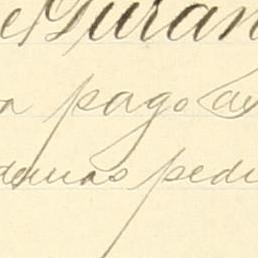 e Duran
a pago de
demas pedi